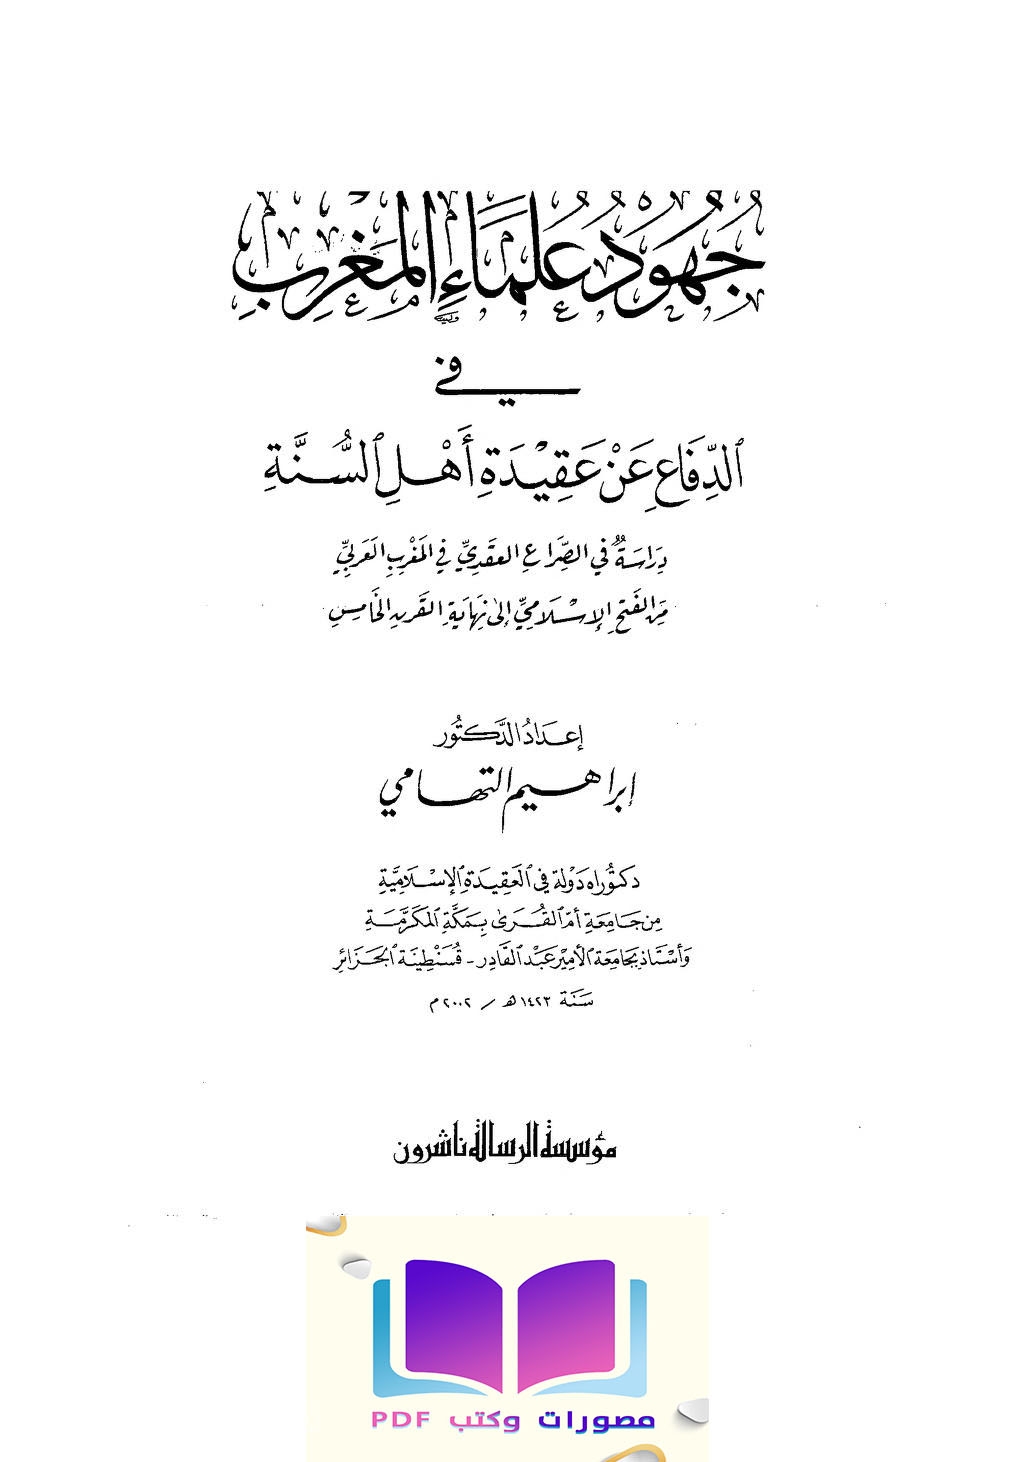 جُهُودُ عُلَمَاءِ المَغْرِبِ
في
الدِّفَاعِ عَنْ عَقِيْدَةِ أَهْلِ السُّنَّةِ
دِرَاسَةٌ في الصِّرَاعِ العقَدِيِّ في المَغْرِبِ العَرَبيِّ
مِنَ الفَتْحِ الإِسْلَامِيِّ إِلىٰ نِهَايَةِ القَرْنِ الخَامِسِ
إعدَادُ الدَّكتُور
إبراهيم التهامي
دكتُوراه دَوْلة في العَقِيدَةِ الإِسْلَامِيَّةِ
مِن جَامِعَةِ أمّ القُرَى بِمَكَّةِ المكَرَّمَةِ
وَأسْتَاذ بجَامِعَة الأمِيْر عَبْد القَادِر - قُسَنْطِينَة الجَزَائِرِ
سَنَة ١٤٢٣ هـ / ٢٠٠٢ م
مؤسسة الرسالة ناشرون
مصورات وكتب PDF